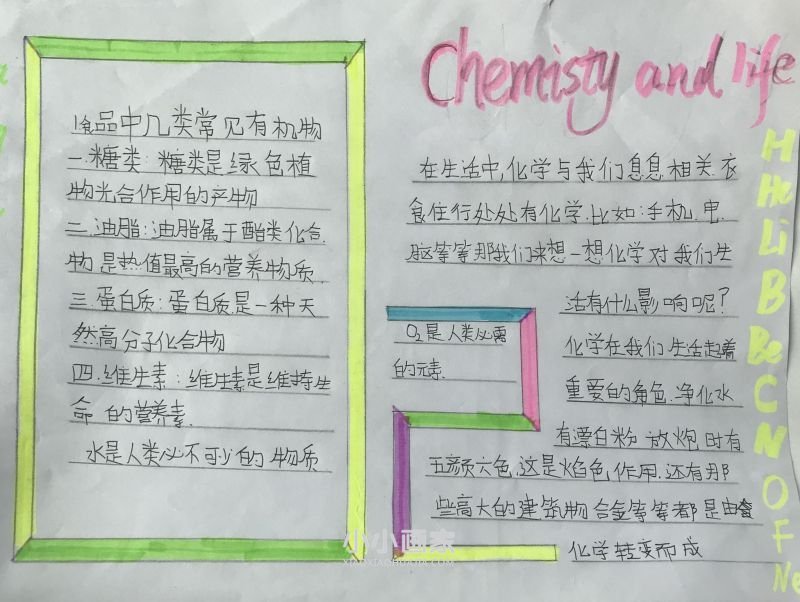 Chemisty and life
1食品中几类常见有机物
一.糖类:糖类是绿色植
物光合作用的产物
二.油脂:油脂属于酯类化合
物是热值最高的营养物质
三.蛋白质:蛋白质是一种天
然高分子化合物
四.维生素:维生素是维持生
命的营养素.
水是人类必不可少的物质
在生活中,化学与我们息息相关.衣
食住行处处有化学.比如:手机.电
脑等等那我们来想一想化学对我们生
活有什么影响呢?
化学在我们生活起着
重要的角色.净化水
有漂白粉 放炮时有
五颜六色.这是焰色作用.还有那
些高大的建筑物合金等等都是由
化学转变而成
O₂是人类必需
的元素.
H
He
Li
B
Be
C
N
O
F
Ne
小小画家
XIAOXIAOHUAJIA.COM